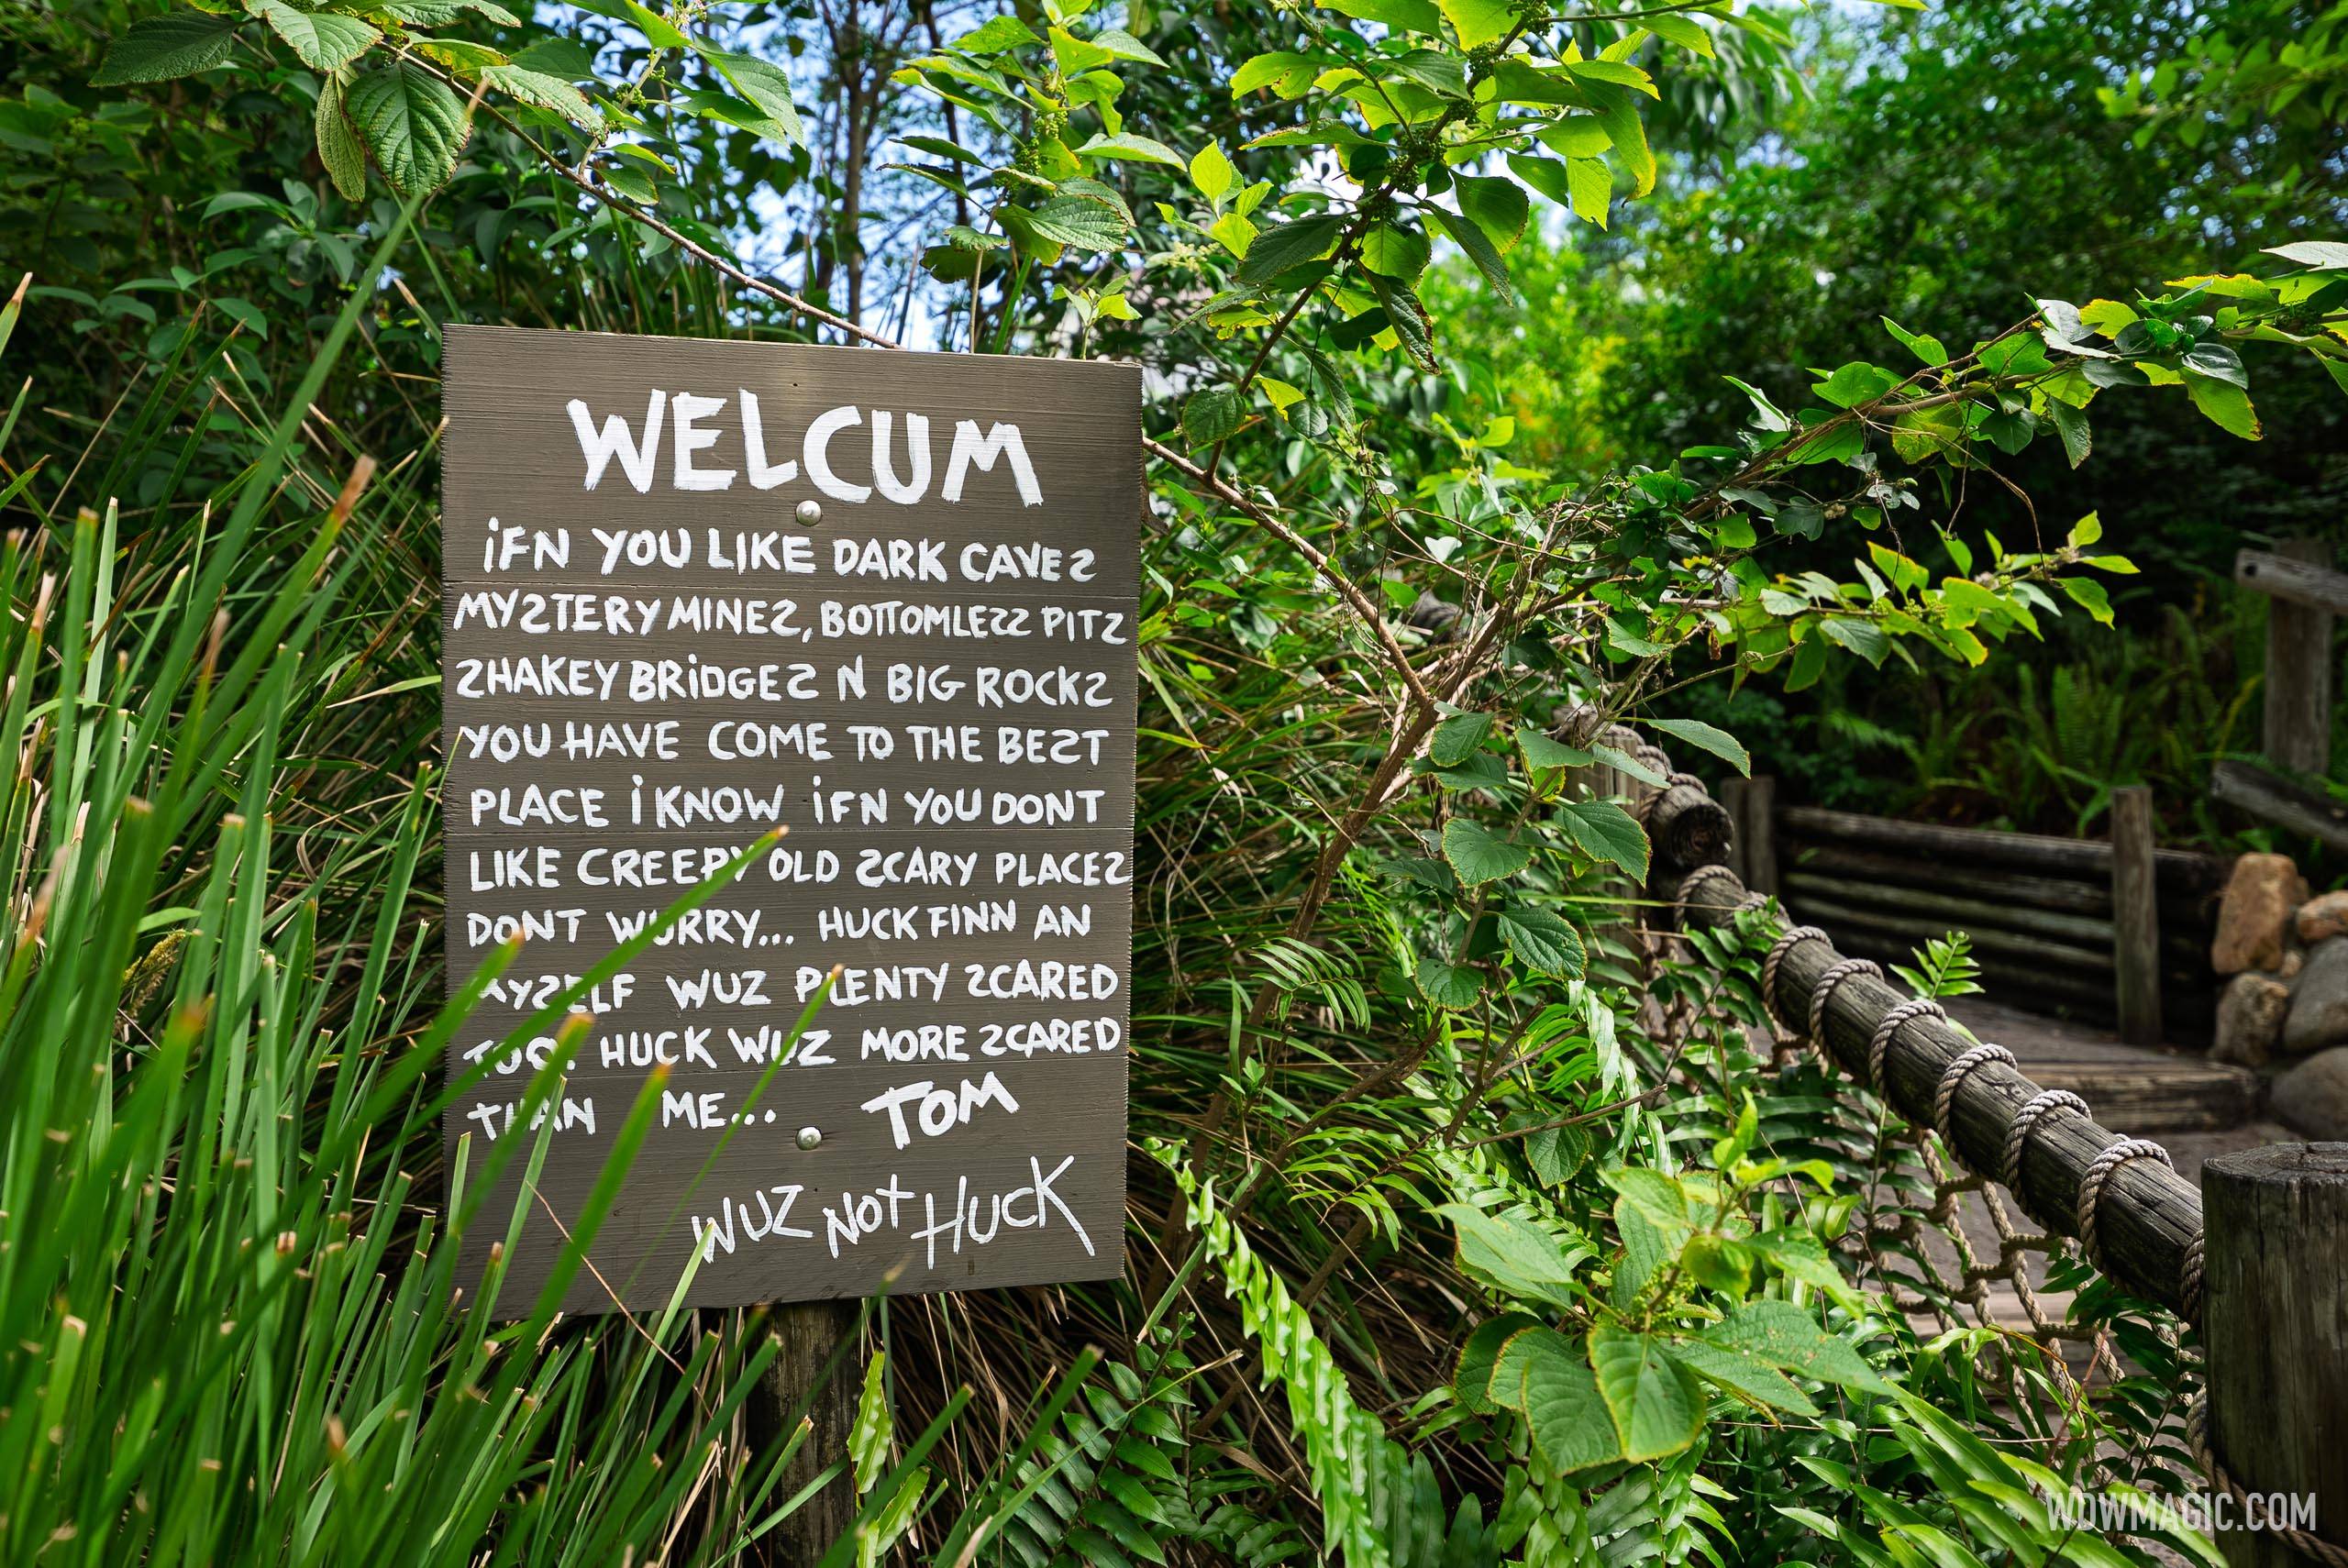 WELCUM
iFN YOU LIKE DARK CAVES
MYSTERY MINES, BOTTOMLESS PITS
SHAKEY BRiDGES N BIG ROCKS
YOU HAVE COME TO THE BEST
PLACE i KNOW iFN YOU DONT
LIKE CREEPY OLD SCARY PLACES
DONT WURRY... HUCK FINN AN
MYSELF WUZ PLENTY SCARED
TOO. HUCK WUZ MORE SCARED
THAN ME... TOM
WUZ NOT HUCK
WDWMAGIC.COM